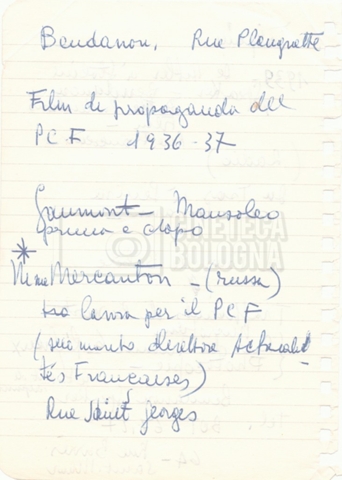 Bendanon, Rue Plougratte
Film di propaganda del
P C F 1936-37
Gaumont - Mausoleo
prima e dopo
CINETECA
BOLOGNA
* Nina Mercanton - (russa)
lavora per il P C F
(suo marito direttore Actuali-
tés Françaises)
Rue Saint Georges